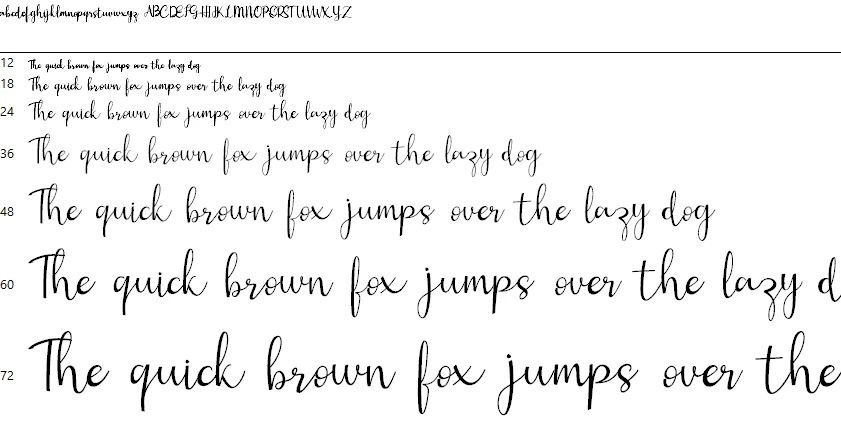 abcdefghijklmnopqrstuvwxyz ABCDEFGHIJKLMNOPQRSTUVWXYZ
12 The quick brown fox jumps over the lazy dog
18 The quick brown fox jumps over the lazy dog
24 The quick brown fox jumps over the lazy dog
36 The quick brown fox jumps over the lazy dog
48 The quick brown fox jumps over the lazy dog
60 The quick brown fox jumps over the lazy d
72 The quick brown fox jumps over the